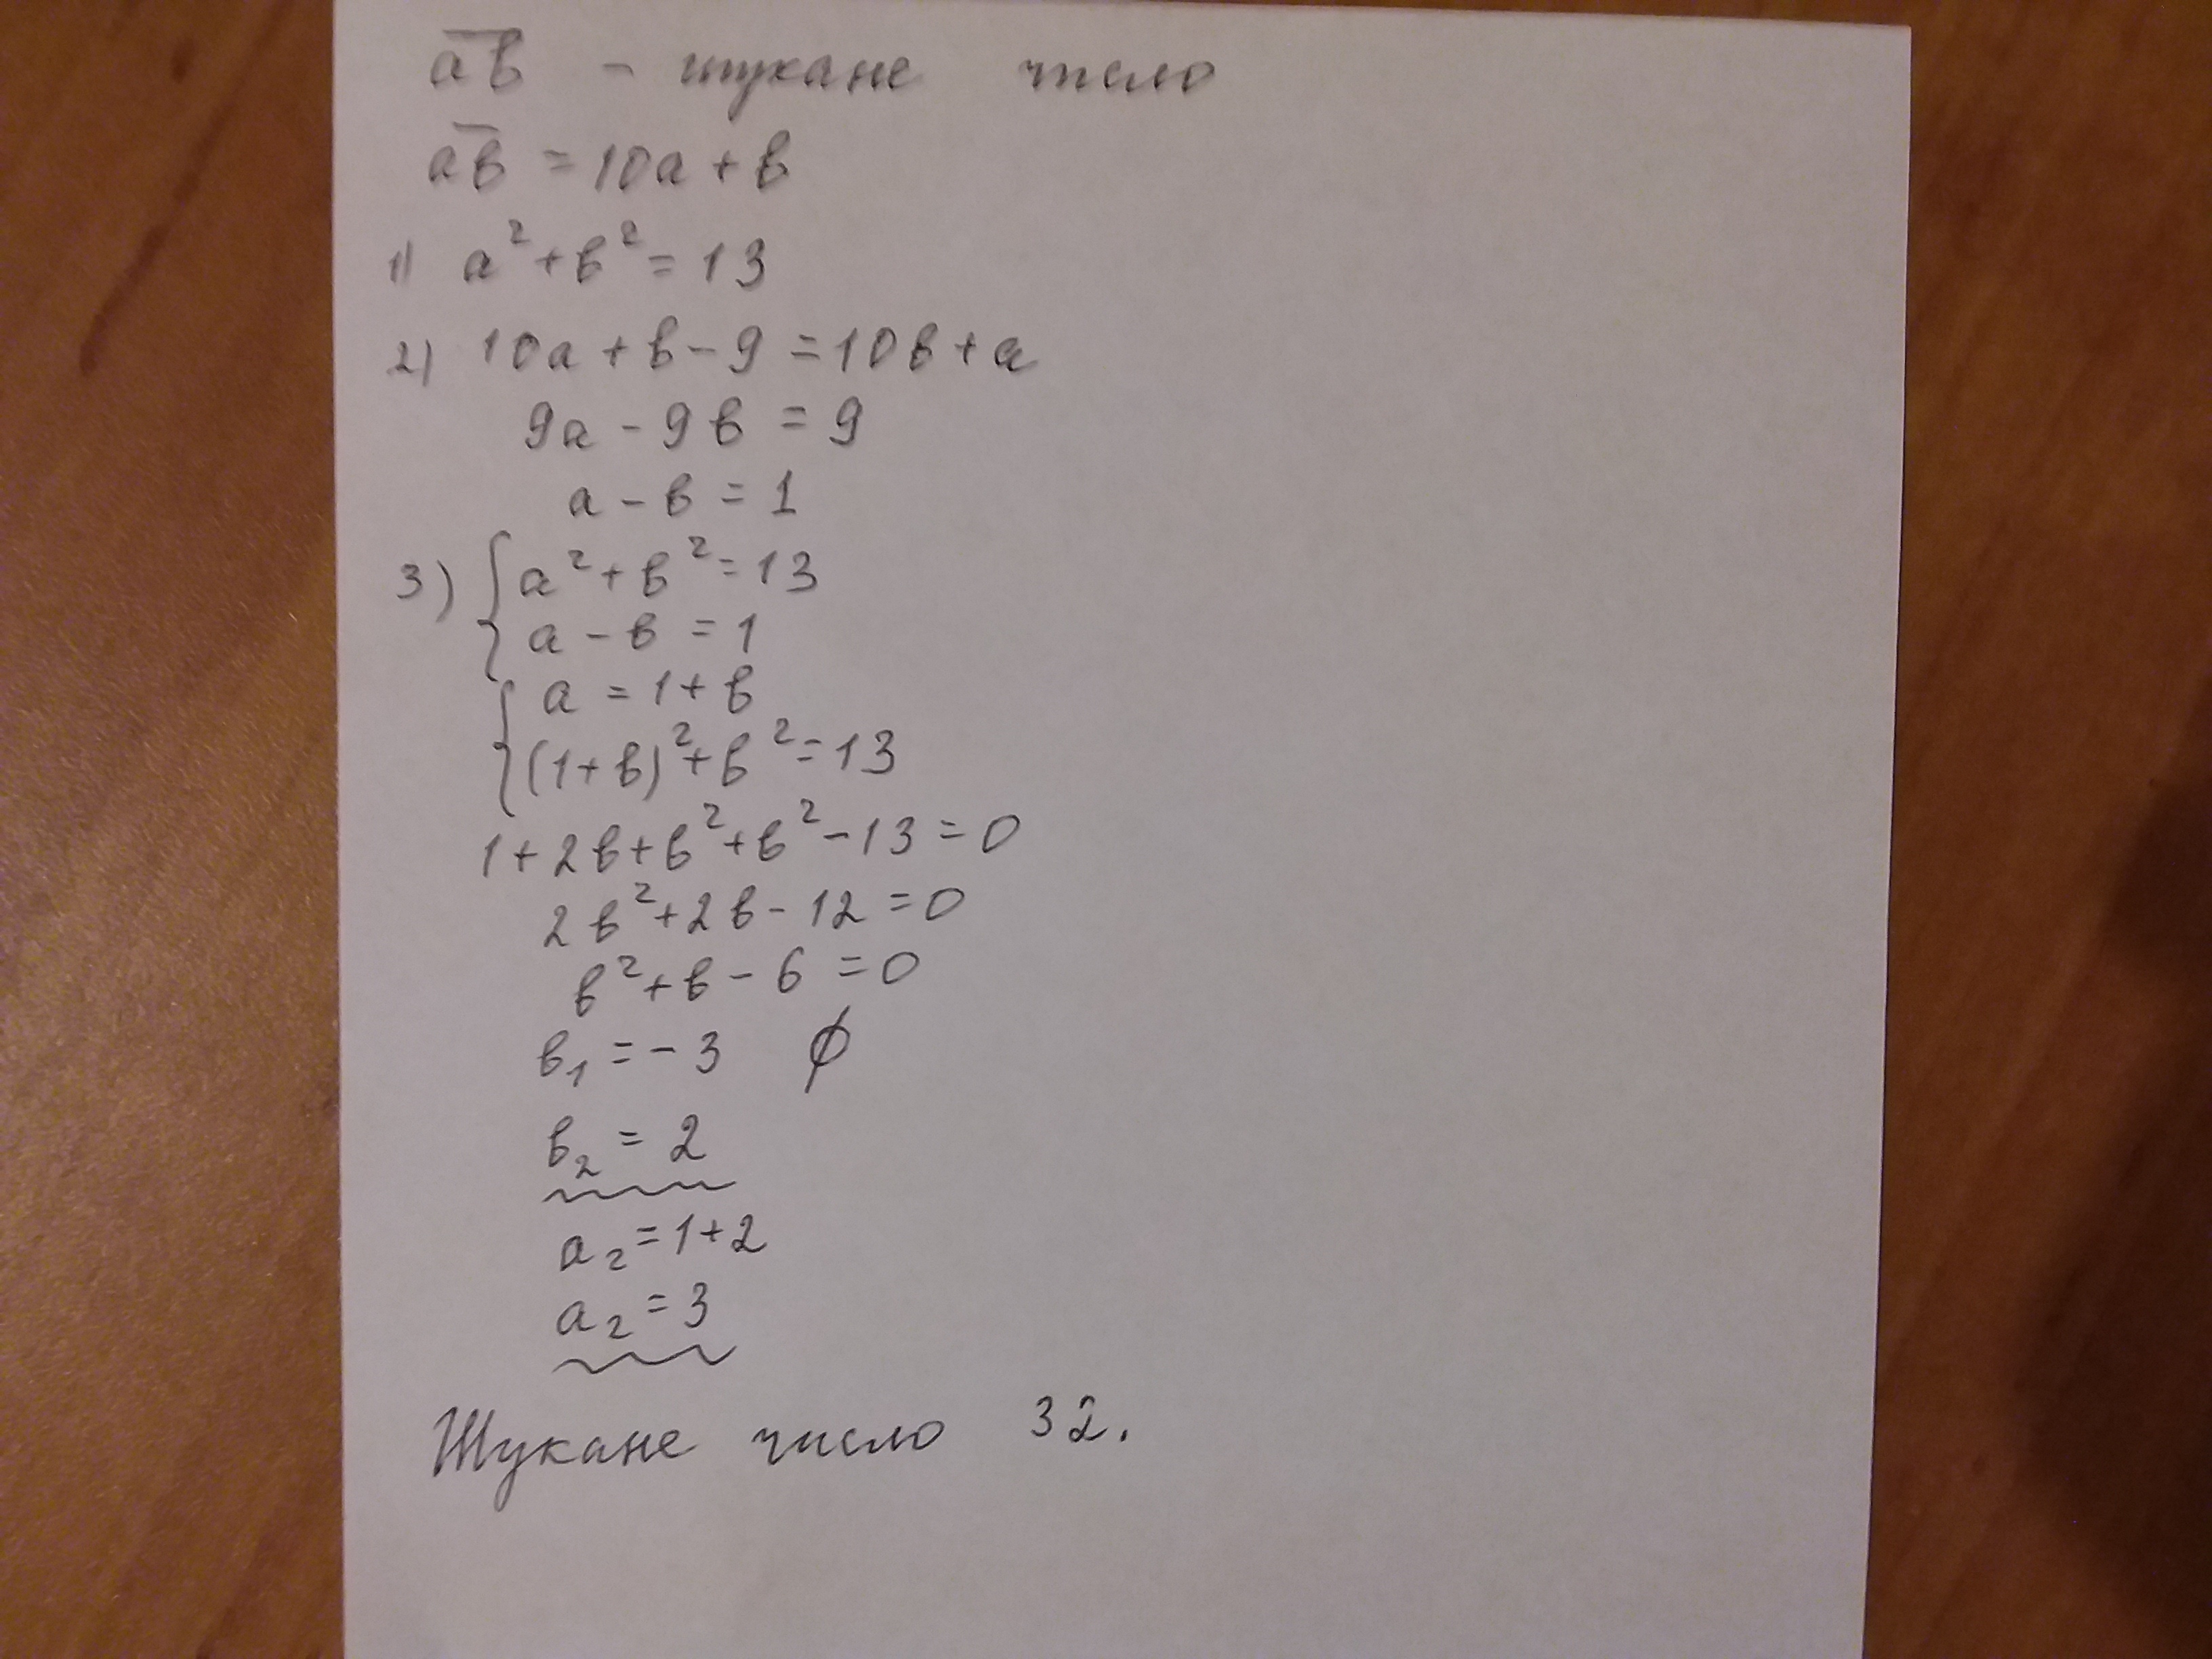 a̅в̅ - шукане число
a̅в̅ = 10a + в
1) a² + в² = 13
2) 10a + в - 9 = 10в + a
9a - 9в = 9
a - в = 1
3) { a² + в² = 13
a - в = 1
{ a = 1 + в
(1 + в)² + в² = 13
1 + 2в + в² + в² - 13 = 0
2в² + 2в - 12 = 0
в² + в - 6 = 0
в₁ = - 3 ∅
в₂ = 2
a₂ = 1 + 2
a₂ = 3
Шукане число 32.